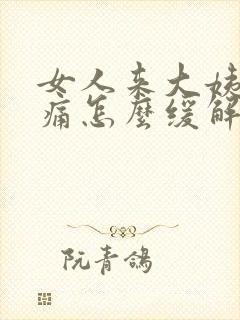 女人来大姨
痛怎麼缓解
阮青鴿